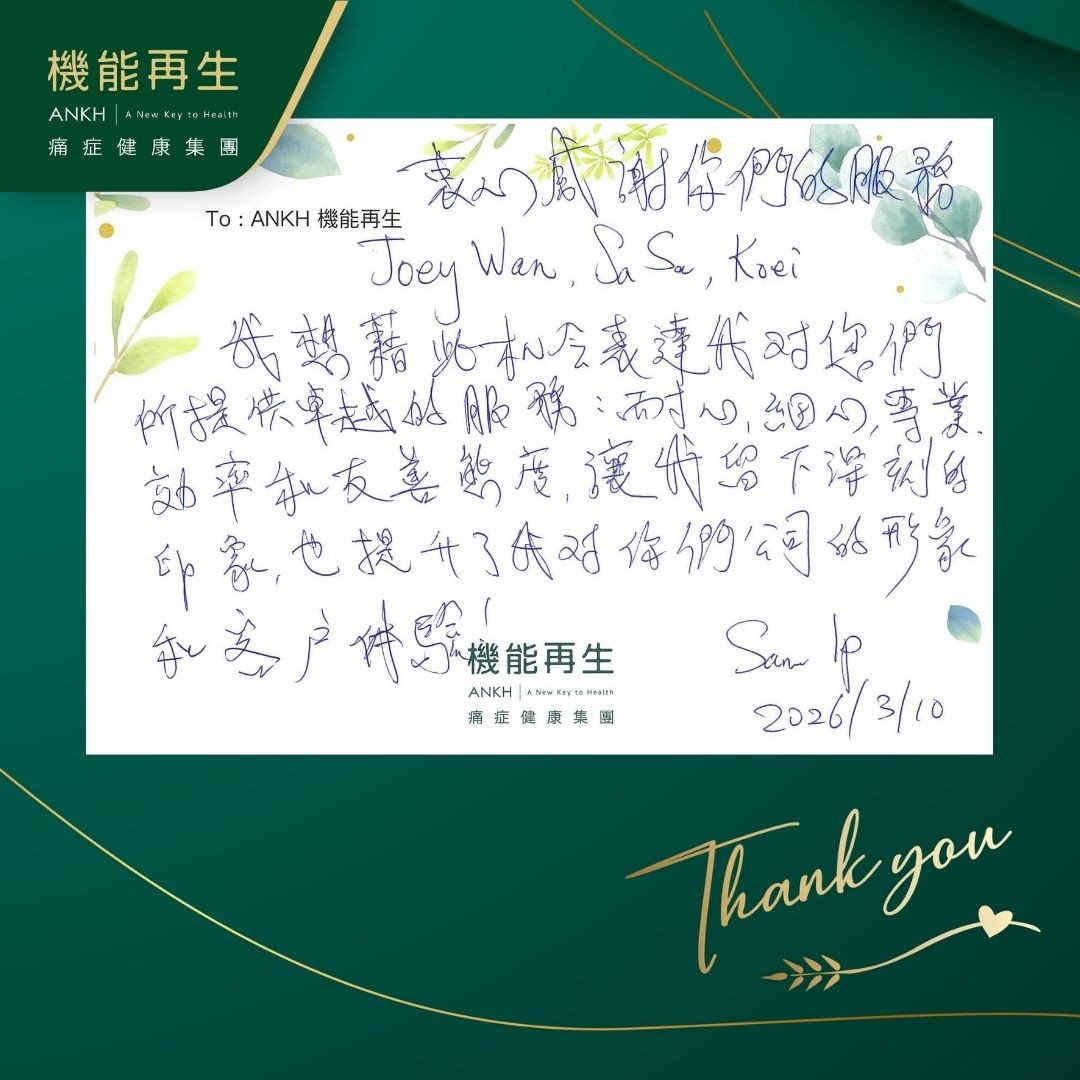 機能再生
ANKH | A New Key to Health
痛症健康集團
衷心感謝你們的服務
To : ANKH 機能再生
Joey Wan, SaSa, Koei
我想藉此机会表達我对您們
所提供卓越的服務：耐心,細心,專業、
効率和友善態度,讓我留下深刻的
印象,也提升了我对你們公司的形象
和客户体驗！
機能再生
ANKH | A New Key to Health
痛症健康集團
Sam Ip
2026/3/10
Thank you